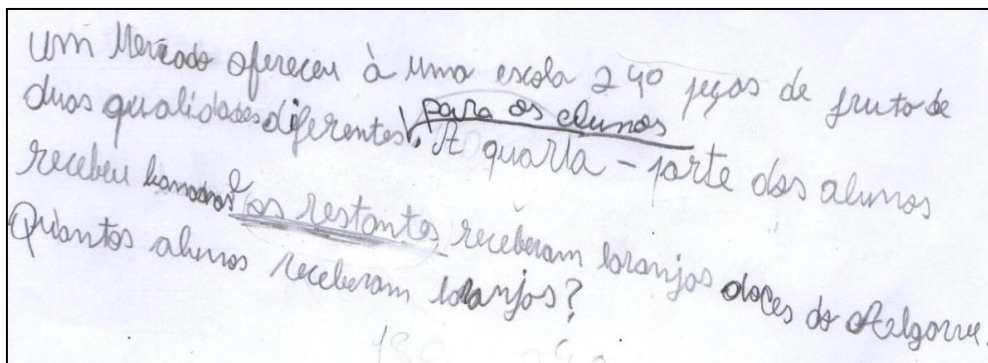 Um Mercado ofereceu à uma escola 240 peças de fruta de
duas qualidades diferentes para os alunos. A quarta - parte dos alunos
recebeu bananas e os restantes receberam laranjas doces do Algarve.
Quantos alunos receberam laranjas?